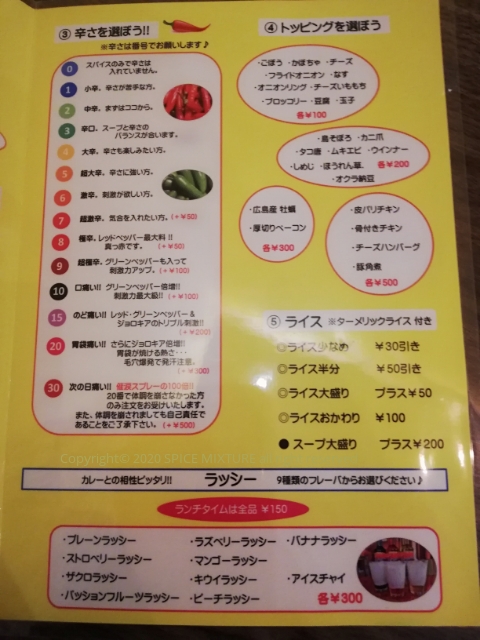 ③ 辛さを選ぼう!!
※辛さは番号でお願いします♪
0 スパイスのみで辛さは
入れていません。
1 小辛、辛さが苦手な方。
2 中辛、まずはココから。
3 辛口、スープと辛さの
バランスが合います。
4 大辛、辛さも楽しみたい方。
5 超大辛、辛さに強い方。
6 激辛、刺激が欲しい方。
7 超激辛、気合を入れたい方。(+¥50)
8 極辛、レッドペッパー最大料!!
真っ赤です。 (+¥50)
9 超極辛、グリーンペッパーも入って
刺激力アップ。(+¥100)
10 口痛い!! グリーンペッパー倍増!!
刺激力最大級!! (+¥100)
15 のど痛い!! レッド・グリーンペッパー&
ジョロキアのトリプル刺激!!
(+¥200)
20 胃袋痛い!! さらにジョロキア倍増!!
胃袋が焼ける熱さ・・・
毛穴爆発で発汗注意。
(+¥300)
30 次の日痛い!! 催涙スプレーの100倍!!
20番で体調を崩さなかった方
のみ注文をお受けいたします。
また、体調を崩されましても自己責任で
あることをご了承下さい。 (+¥500)
④ トッピングを選ぼう
・ごぼう ・かぼちゃ ・チーズ
・フライドオニオン ・なす
・オニオンリング ・チーズいももち
・ブロッコリー ・豆腐 ・玉子
各¥100
・鳥そぼろ ・カニ爪
・タコ唐 ・ムキエビ ・ウインナー
・しめじ ・ほうれん草 各¥200
・オクラ納豆
・広島産 牡蠣
・厚切りベーコン
各¥300
・皮パリチキン
・骨付きチキン
・チーズハンバーグ
・豚角煮
各¥500
⑤ ライス ※ターメリックライス 付き
◎ライス少なめ ¥30引き
◎ライス半分 ¥50引き
◎ライス大盛り プラス¥50
◎ライスおかわり ¥100
● スープ大盛り プラス¥200
Copyright© 2020 SPICE MIXTURE
カレーとの相性ピッタリ!! ラッシー 9種類のフレーバからお選びください♪
ランチタイムは全品 ¥150
・プレーンラッシー ・ラズベリーラッシー ・バナナラッシー
・ストロベリーラッシー ・マンゴーラッシー
・ザクロラッシー ・キウイラッシー ・アイスチャイ
・パッションフルーツラッシー ・ピーチラッシー 各¥300